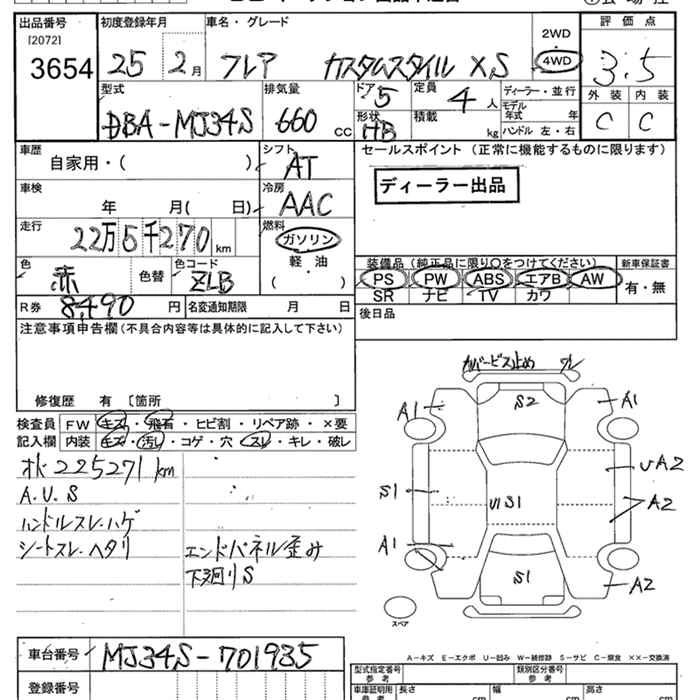 出品番号 初度登録年月 車名・グレード 2WD 評価点
[2072]
3654 25 2月 フレア カスタムスタイル XS 4WD 3.5
型式 排気量 ドア 5 定員 4人 ディーラー・並行 外装 内装
モデル年式 年
DBA-MJ34S 660cc 形状 HB 積載 kg ハンドル 左・右 C C
車歴 シフト セールスポイント (正常に機能するものに限ります)
自家用・( ) AT
ディーラー出品
車検 冷房
年 月( 日) AAC
走行 燃料
22万5千270km ガソリン
軽・油
( )
装備品 (純正品に限り〇をつけてください) 新車保証書
色 色替 色コード PS PW ABS エアB AW 有・無
赤 ZLB SR ナビ TV カワ
R券 8,490円 名変通知期限 月 日 後日品
注意事項申告欄(不具合内容等は具体的に記入して下さい)
修復歴 有 〔箇所 〕
検査員 FW キズ・飛石・ヒビ割・リペア跡・×要
記入欄 内装 キズ・汚レ・コゲ・穴・スレ・キレ・破レ
オド225271km
A.U.S
ハンドルスレ.ハゲ
シートスレ.ヘタリ エンドパネル歪み
下廻りS
カバービス止め ワレ
A1 S2 A1
UA2
S1 U1S1 A2
A1
S1 A2
スペア
車台番号 MJ34S-701935
A-キズ E-エクボ U-凹み W-補修跡 S-サビ C-腐食 ××-交換済
登録番号
型式指定番号 参考 類別区分番号 参考
車庫証明用 参考 長さ cm 幅 cm 高さ cm